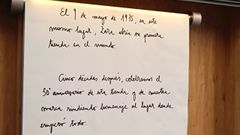 El 9 de mayo de 1975, en este
mismo lugar, Zara abría su primera
tienda en el mundo.
Cinco décadas después, celebramos el
50 aniversario de esta tienda y de nuestra
marca rindiendo homenaje al lugar donde
empezó todo.